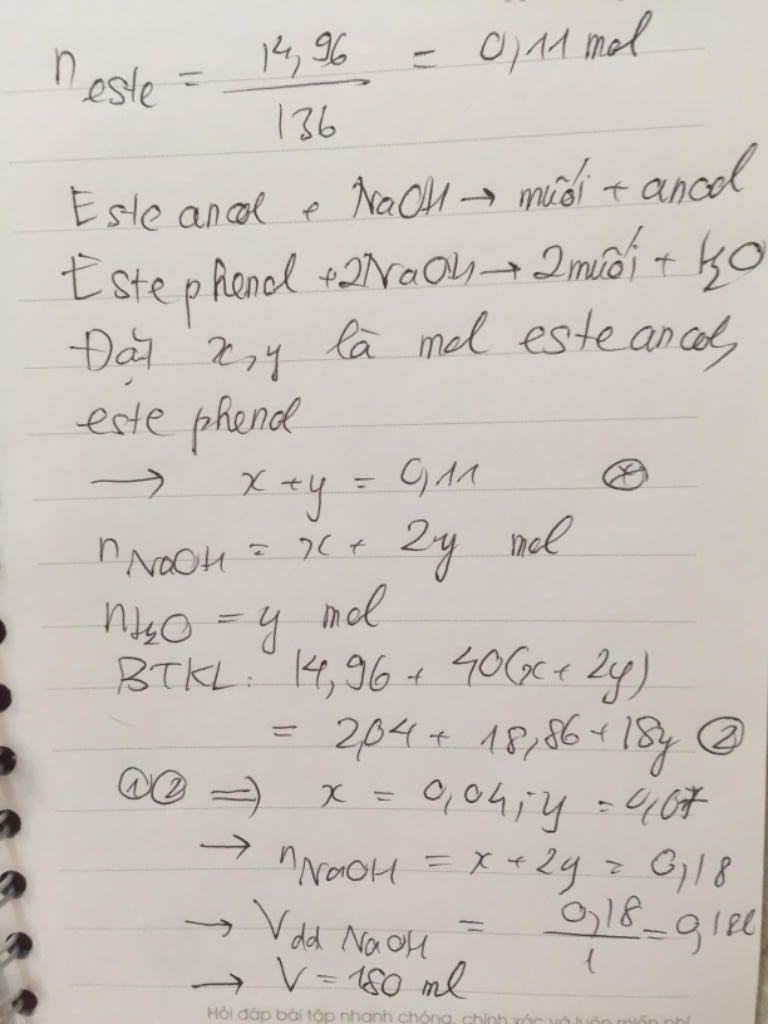 n este = 14,96 / 136 = 0,11 mol
Este ancol + NaOH → muối + ancol
Este phenol + 2NaOH → 2 muối + H₂O
Đặt x, y là mol este ancol,
este phenol
→ x + y = 0,11 (*)
n NaOH = x + 2y mol
n H₂O = y mol
BTKL: 14,96 + 40(x + 2y)
= 2,04 + 18,86 + 18y ②
①② => x = 0,04; y = 0,07
→ n NaOH = x + 2y = 0,18
→ V dd NaOH = 0,18 / 1 = 0,18 l
→ V = 180 ml
Hỏi đáp bài tập nhanh chóng, chính xác và luôn miễn phí